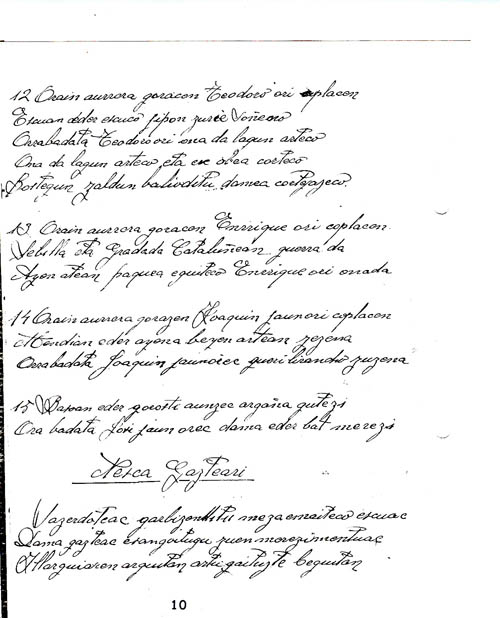 12 Orain aurrora goracon Teodoro ori coplacon
Escuan eder escuco sipon zurie
Orrabadata Teodoro ori ona da lagun arteco
Ona da lagun arteco eta ere obea corteco
Bostegun zaldun balioditu damea cortezazeco
13 Orain aurrora goracon Enrrique ori coplacon
Sebilla eta Gradada Cataluñean guerra da
Azen atean paquea eguiteco Enrique ori onada
14 Orain aurrora gorazen Joaquin jaun ori coplacon
Mendian eder azena bezen artean zezena
Orrabadata Joaquin jaunoiec zuzena
15 Basoan eder gorosti aunzec argaña gutizi
Ora badata Josi jaun orec dama eder bat merezi
Nesca Gazteari
garbizen meza emaiteco escuac
Dama gazteac esangoitugu zuen merezimentuac
Illarguiaren arguitan artu gaituzte beguitan
10